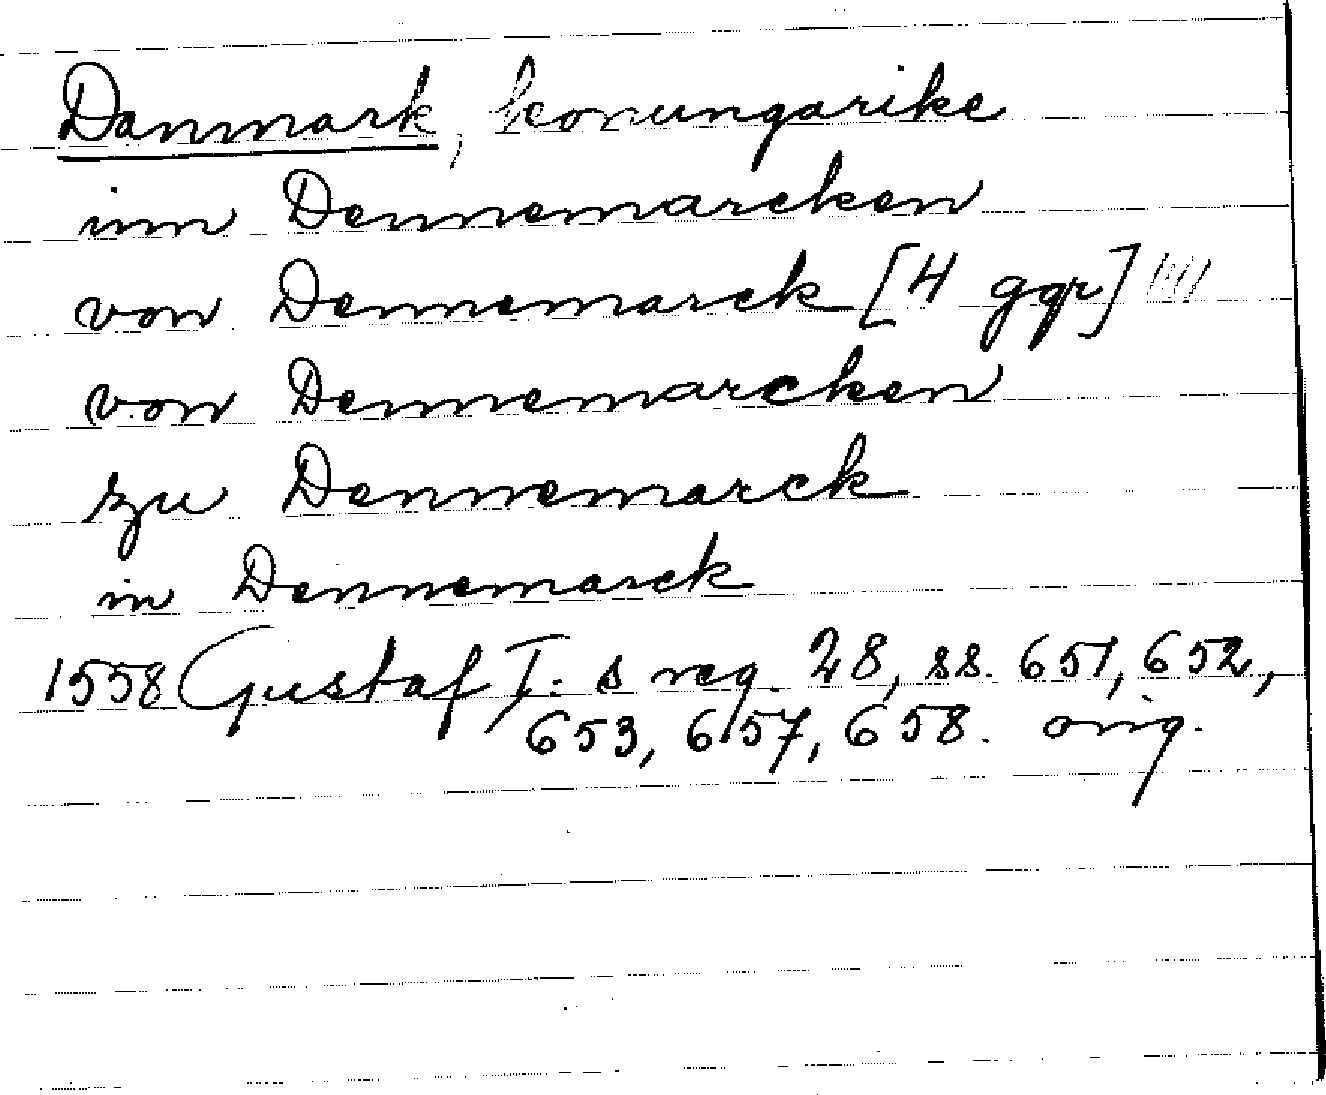 Danmark, konungarike
inn Dennemarcken
von Dennemarck [4 ggr] ||||
von Dennemarcken
zu Dennemarck
in Dennemarck
1558 Gustaf I:s reg. 28, ss. 651, 652,
653, 657, 658. orig.